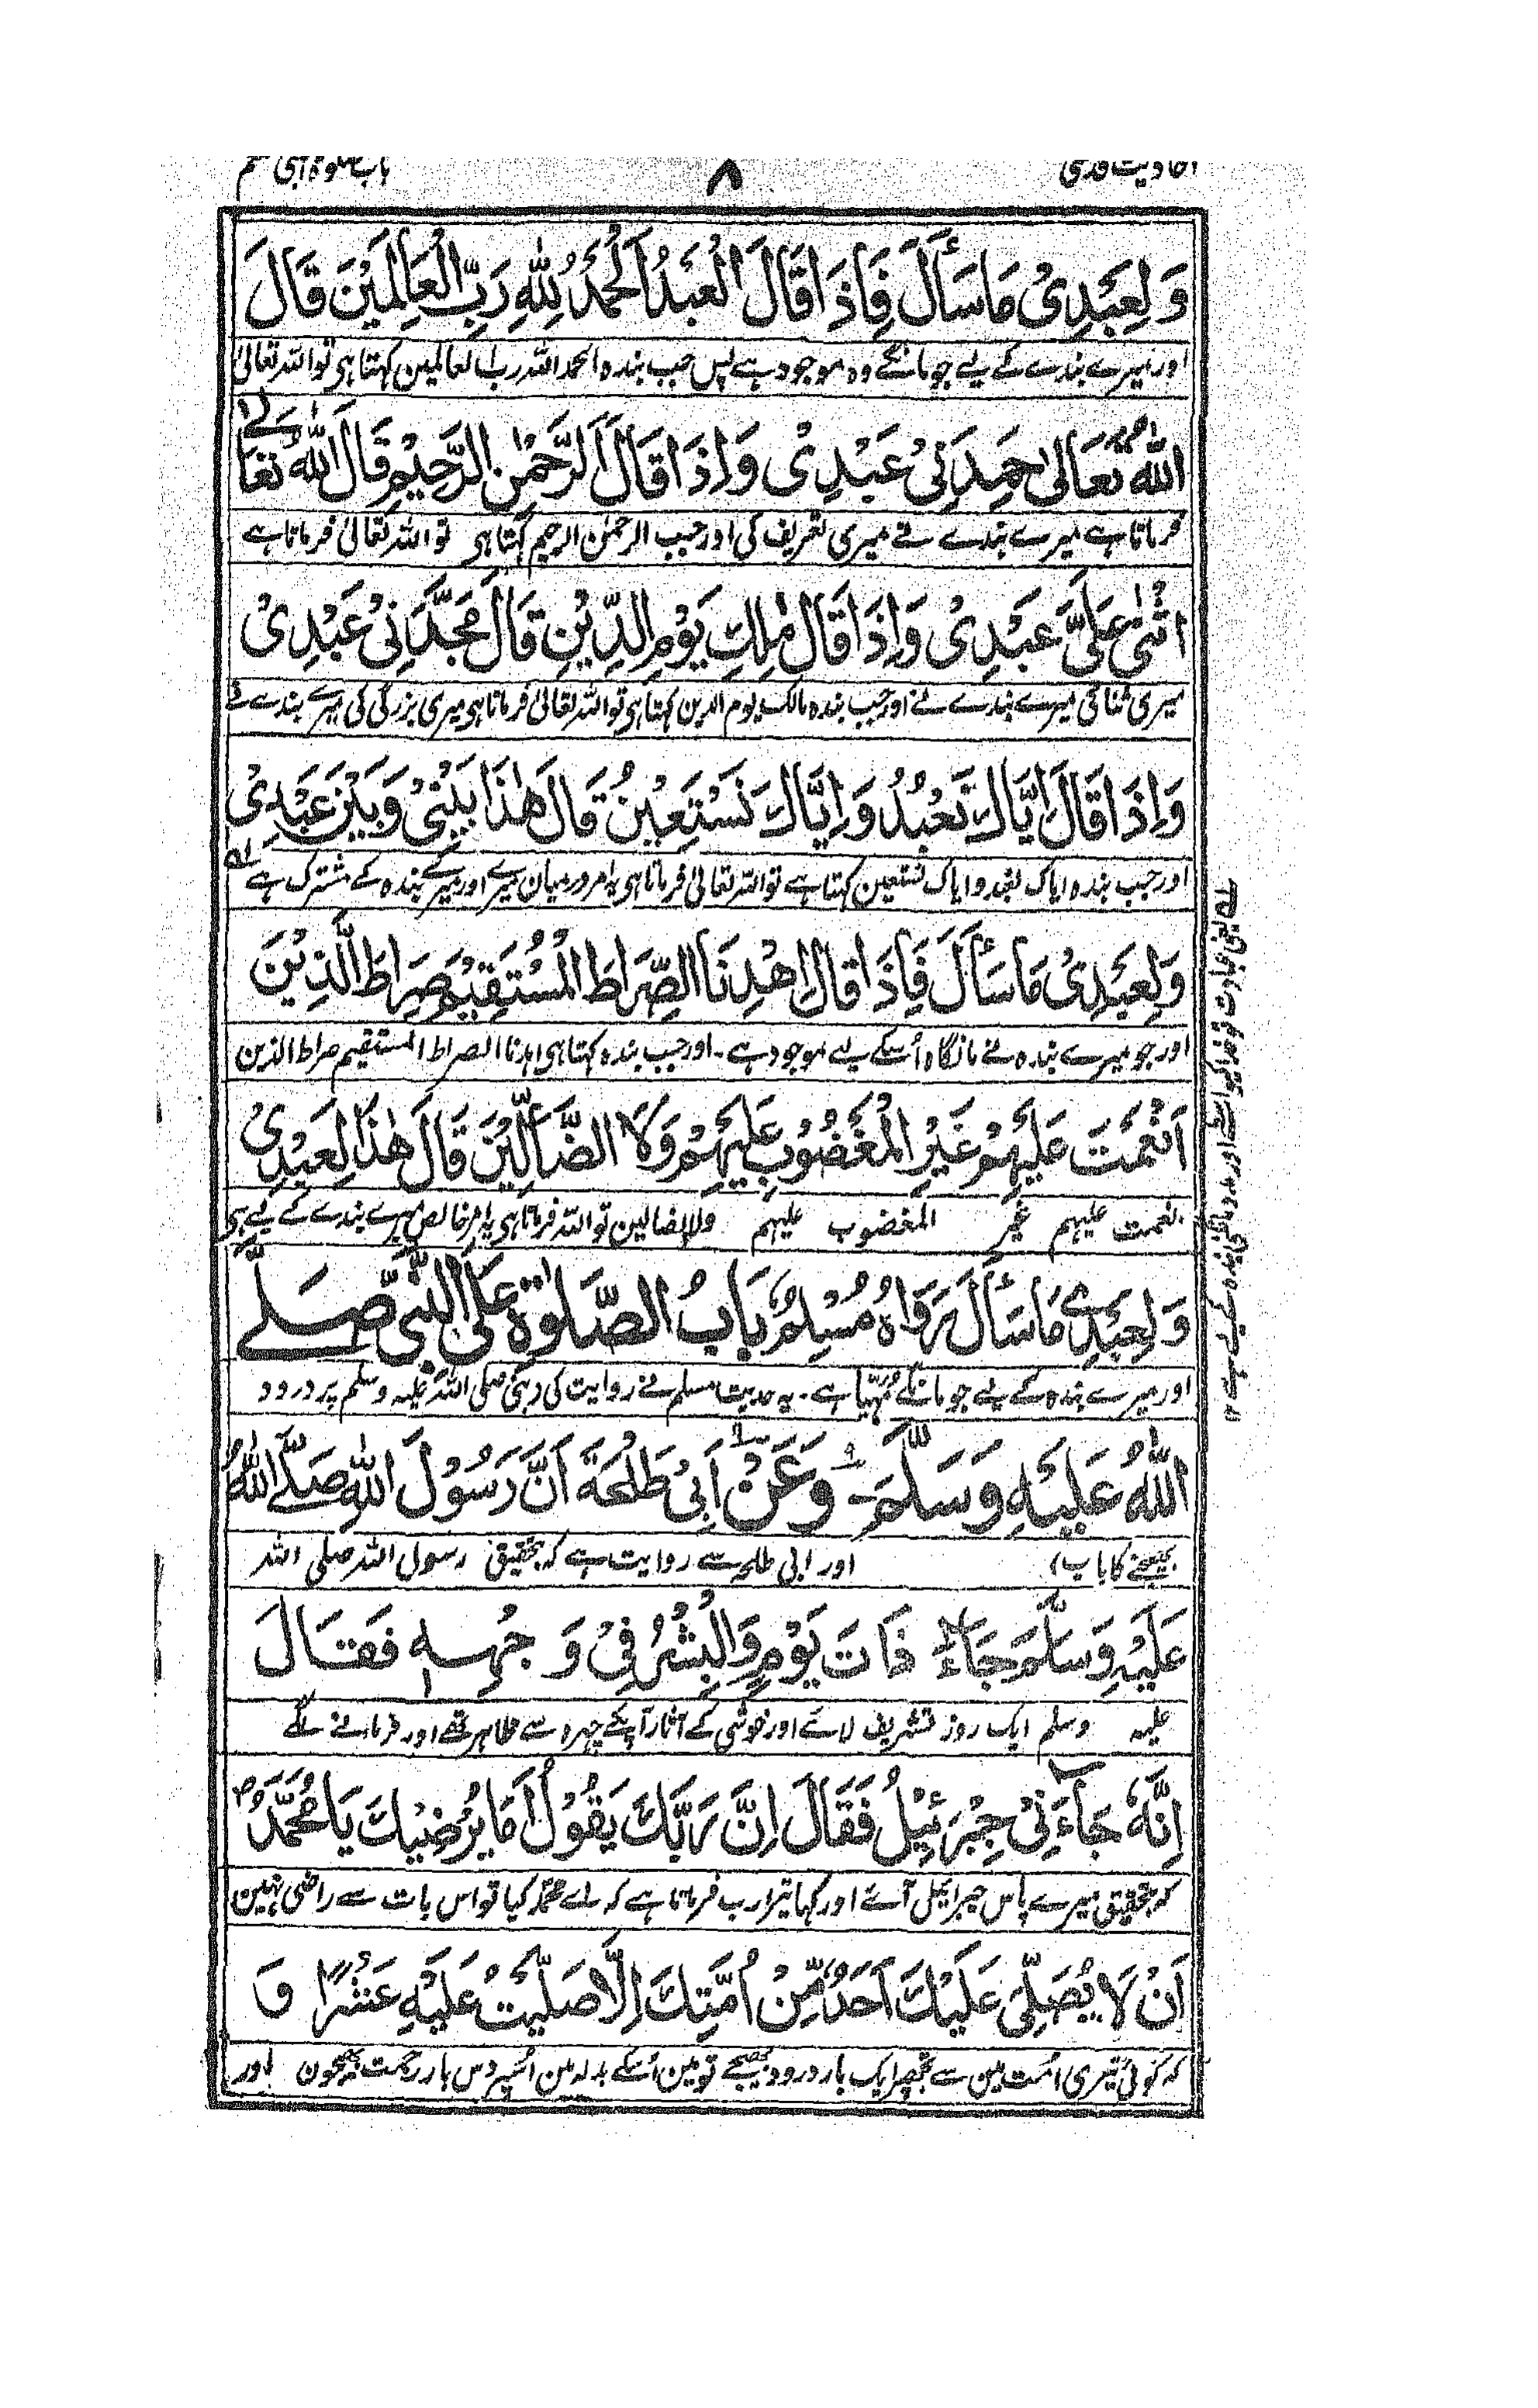 احادیث قدسی ۸ باب صلوۃ النبی صلعم
وَلِعَبْدِیْ مَا سَأَلَ فَاِذَا قَالَ الْعَبْدُ اَلْحَمْدُ لِلّٰهِ رَبِّ الْعَالَمِیْنَ قَالَ
اور میرے بندے کے لیے جو مانگے وہ موجود ہے پس جب بندہ الحمد اللہ رب العالمین کہتا ہی تو اللہ تعالیٰ
اللّٰهُ تَعَالٰی حَمِدَنِیْ عَبْدِیْ وَاِذَا قَالَ اَلرَّحْمٰنِ الرَّحِیْمِ قَالَ اللّٰهُ تَعَالٰے
فرماتا ہے میرے بندے نے میری تعریف کی اور جب الرحمٰن الرحیم کہتا ہی تو اللہ تعالیٰ فرماتا ہے
اثْنٰی عَلَیَّ عَبْدِیْ وَاِذَا قَالَ مٰلِكِ یَوْمِ الدِّیْنِ قَالَ مَجَّدَنِیْ عَبْدِیْ
میری ثنا کی میرے بندے نے اور جب بندہ مالک یوم الدین کہتا ہی تو اللہ تعالیٰ فرماتا ہی میری بزرگی کی میرے بندے نے
وَاِذَا قَالَ اِیَّاكَ نَعْبُدُ وَاِیَّاكَ نَسْتَعِیْنُ قَالَ هٰذَا بَیْنِیْ وَبَیْنَ عَبْدِیْ
اور جب بندہ ایاک نعبد و ایاک نستعین کہتا ہے تو اللہ تعالیٰ فرماتا ہی یہ امر درمیان میرے اور میرے بندہ کے مشترک ہے
وَلِعَبْدِیْ مَا سَأَلَ فَاِذَا قَالَ اِهْدِنَا الصِّرَاطَ الْمُسْتَقِیْمَ صِرَاطَ الَّذِیْنَ
اور جو میرے بندہ نے مانگا وہ اُسکے لیے موجود ہے۔ اور جب بندہ کہتا ہی اہدنا الصراط المستقیم صراط الذین
اَنْعَمْتَ عَلَیْهِمْ غَیْرِ الْمَغْضُوْبِ عَلَیْهِمْ وَلَا الضَّآلِّیْنَ قَالَ هٰذَا لِعَبْدِیْ
انعمت علیہم غیر المغضوب علیہم ولا الضالین تو اللہ فرماتا ہی یہ امر خالص میرے بندے کے لیے ہی
وَلِعَبْدِے مَا سَأَلَ رَوَاهُ مُسْلِمٌ بَابُ الصَّلٰوةِ عَلَی النَّبِیِّ صَلَّے
اور میرے بندہ کے لیے جو مانگے مُہیّا ہے۔ یہ حدیث مسلم نے روایت کی (نبی صلی اللہ علیہ وسلم پر درود
اللّٰهُ عَلَیْهِ وَسَلَّمَ۔ وَعَنْ اَبِیْ طَلْحَةَ اَنَّ رَسُوْلَ اللّٰهِ صَلَّے اللّٰهُ
بھیجنے کا باب) اور ابی طلحہ سے روایت ہے کہ بتحقیق رسول اللہ صلی اللہ
عَلَیْهِ وَسَلَّمَ جَاءَ ذَاتَ یَوْمٍ وَالْبِشْرُ فِیْ وَجْهِهٖ فَقَالَ
علیہ وسلم ایک روز تشریف لائے اور خوشی کے آثار آپکے چہرہ سے ظاہر تھے اور فرمانے لگے
اِنَّهٗ جَآءَنِیْ جِبْرَئِیْلُ فَقَالَ اِنَّ رَبَّكَ یَقُوْلُ اَمَا یُرْضِیْكَ یَا مُحَمَّدُ
کہ بتحقیق میرے پاس جبرائیل آئے اور کہا تیرا رب فرماتا ہے کہ اے محمد کیا تو اس بات سے راضی نہین
اَنْ لَا یُصَلِّیَ عَلَیْكَ اَحَدٌ مِّنْ اُمَّتِكَ اِلَّا صَلَّیْتُ عَلَیْهِ عَشْرًا وَ
کہ کوئی تیری اُمت مین سے تجھپر ایک بار درود بھیجے تو مین اُسکے بدلہ مین اُسپر دس بار رحمت بھیجون اور